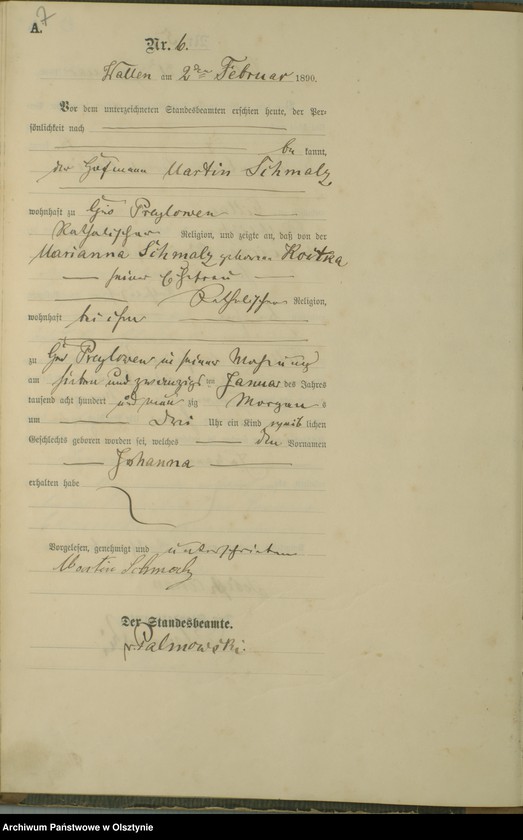 A. 7
Nr. 6.
Wallen am 2ten Februar 1890.
Vor dem unterzeichneten Standesbeamten erschien heute, der Per-
sönlichkeit nach
be kannt,
der Hofmann Martin Schmalz
wohnhaft zu Gut Preylowen
Katholischer Religion, und zeigte an, daß von der
Marianna Schmalz geborene Koitka
seiner Ehefrau
Katholischer Religion,
wohnhaft bei ihm
zu Gut Preylowen in seiner Wohnung
am sieben und zwanzigs ten Januar des Jahres
tausend acht hundert und neun zig Morgen s
um Drei Uhr ein Kind weib lichen
Geschlechts geboren worden sei, welches den Vornamen
Johanna
erhalten habe
Vorgelesen, genehmigt und unterschrieben
Martin Schmalz
Der Standesbeamte.
v. Palmowski.
Archiwum Państwowe w Olsztynie